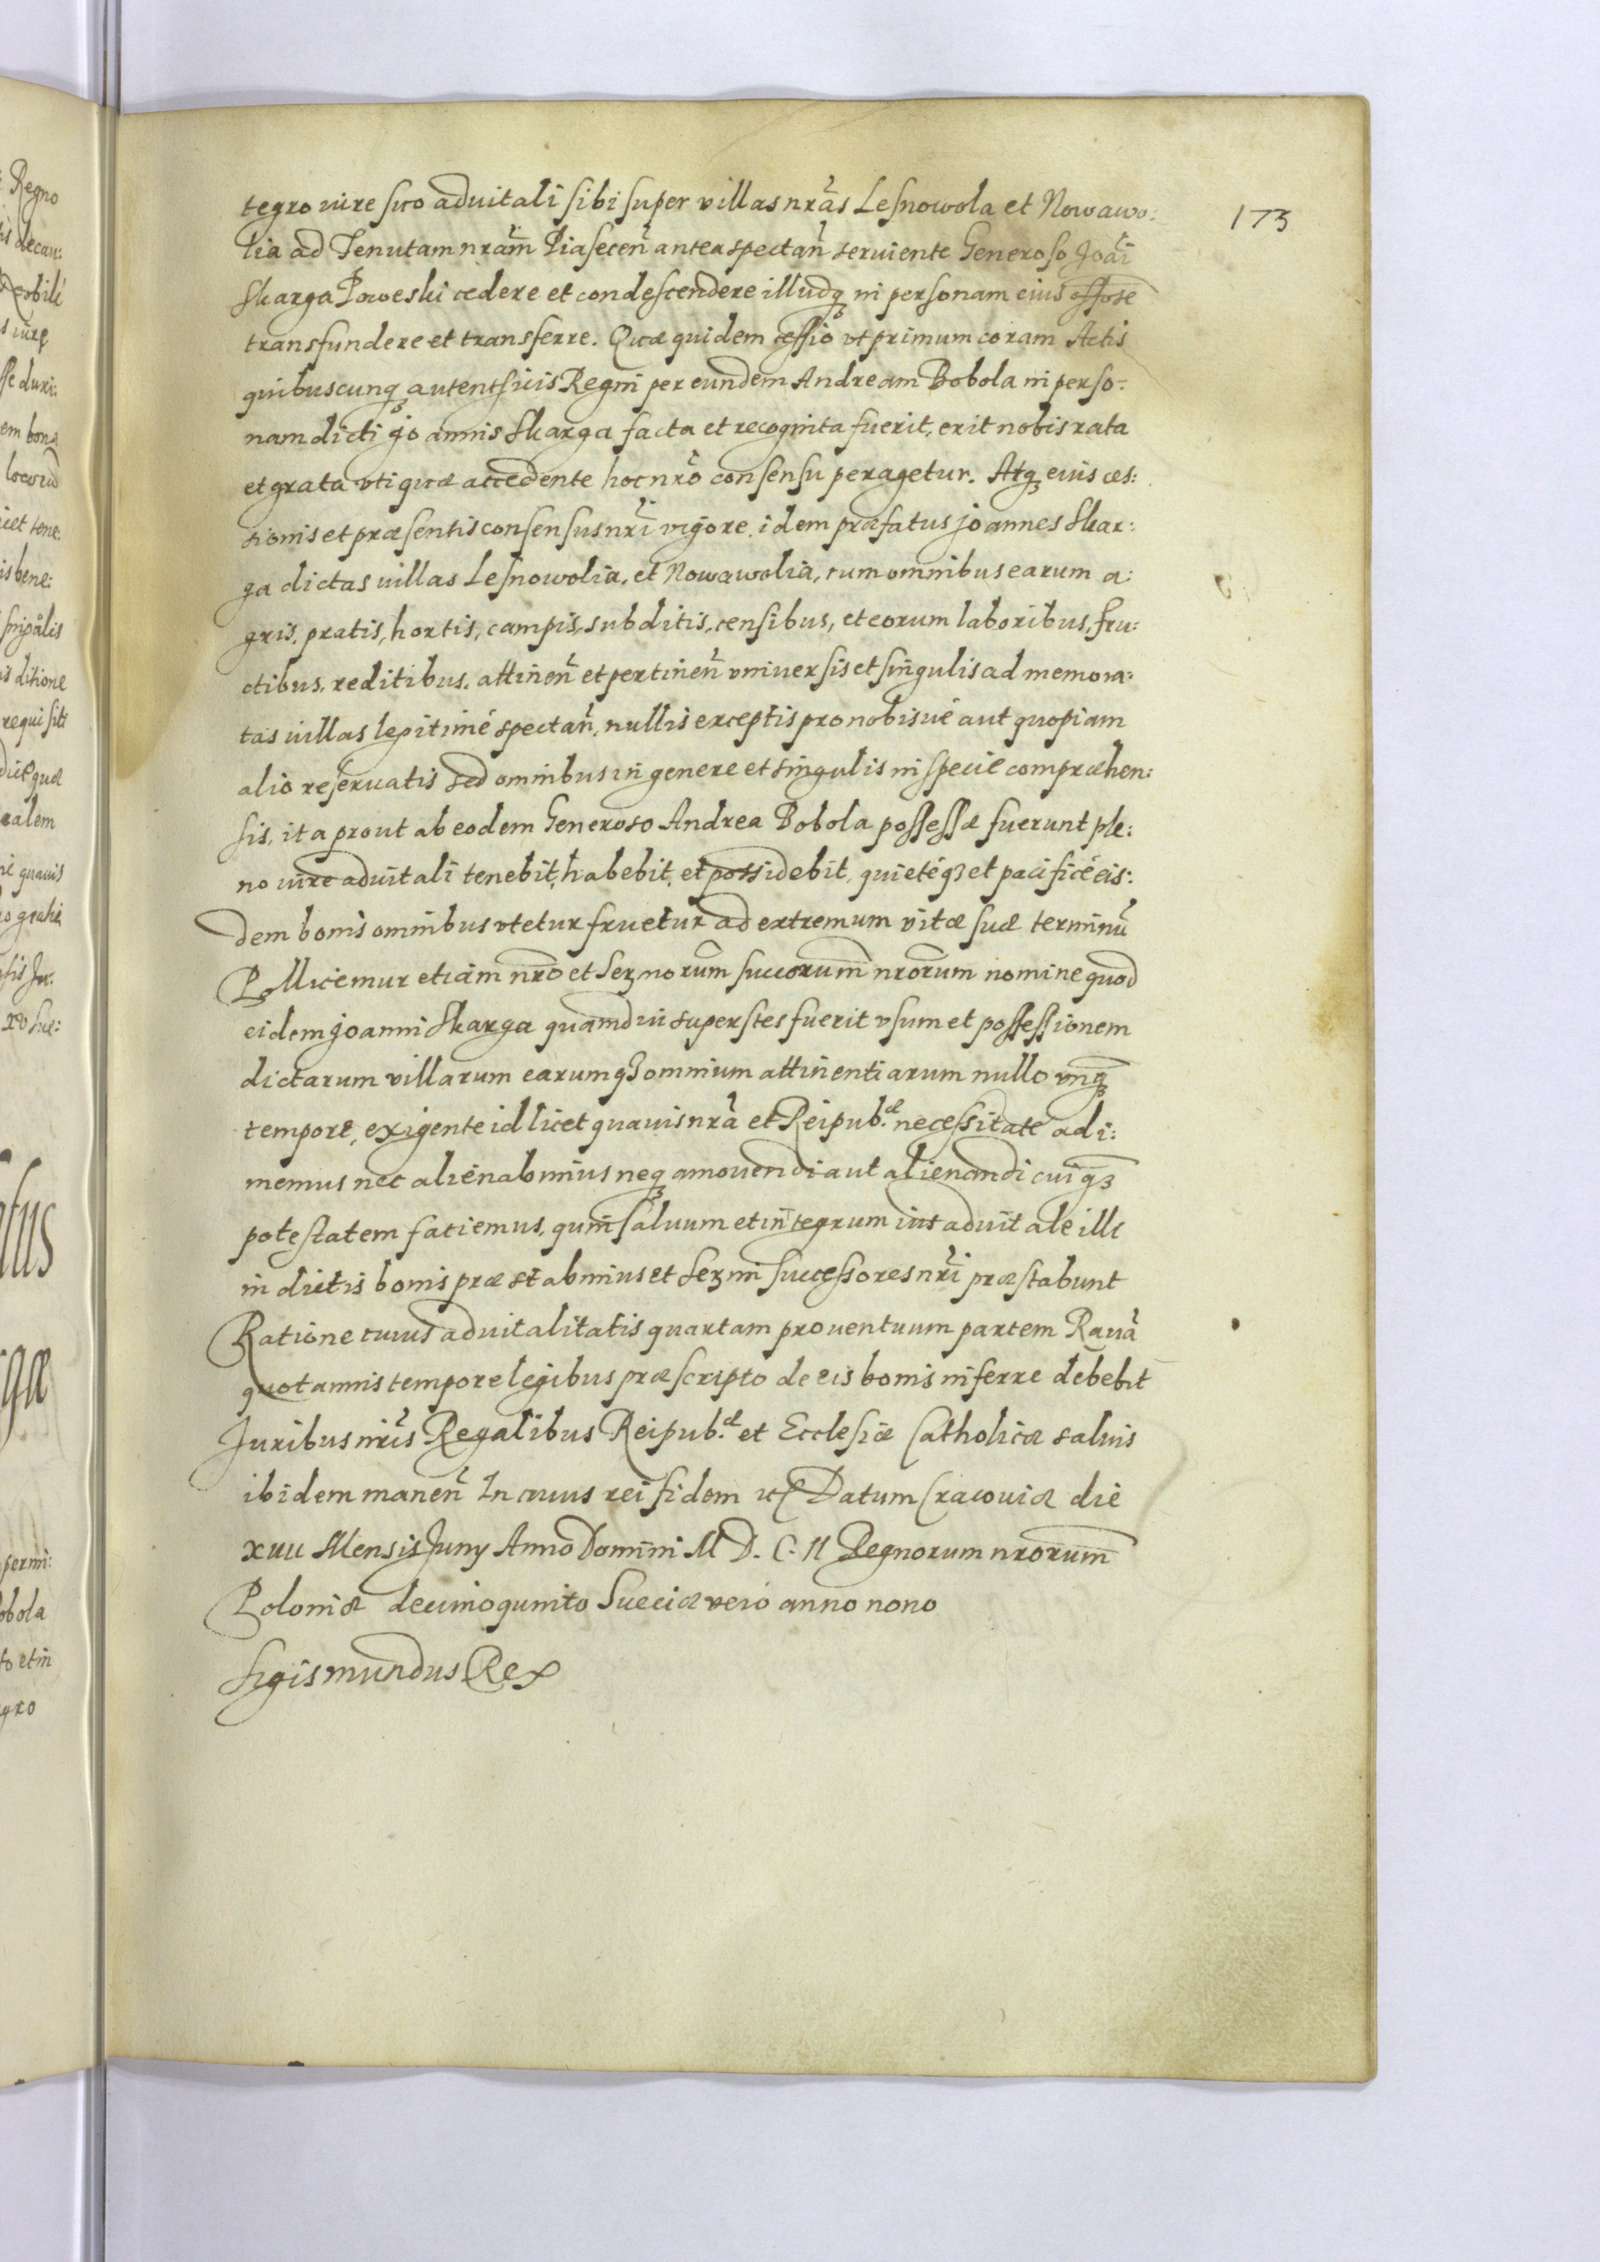 173
tegro iure suo aduitali sibi super villas nrãs Lesnowola et Nowawo:
lia ad Tenutam nrãm Piasecen̄ antea spectan̄ seruiente Generoso Joãi
Skarga Poweski cedere et condescendere illudq̨ in personam eius
transfundere et transferre. Quæ quidem cessio vt primum coram Actis
quibuscunq̨ autentisicis Regni per eundem Andream Bobola in perso:
nam dicti Joannis Skarga facta et recognita fuerit, erit nobis rata
et grata vti quæ accedente hoc nrõ consensu peragetur. Atq̨ eius ces:
sionis et præsentis consensus nrĩ vigore. idem præfatus Joannes Skar:
ga dictas villas Lesnowolia, et Nowawolia, cum omnibus earum a:
gris, pratis, hortis, campis, subditis, censibus, et eorum laboribus, fru:
ctibus, reditibus, attinen̄ et pertinen̄ vniuersis et singulis ad memora:
tas villas legitimè spectan̄, nullis exceptis pro nobisuè aut quopiam
alio reseruatis sed omnibus in genere et singulis in specie compræhen:
sis, ita prout ab eodem Generoso Andrea Bobola possessæ fuerunt ple:
no iure aduitali tenebit, habebit, et possidebit, quietéq̨ et pacificè eis:
dem bonis omnibus vtetur fruetur ad extremum vitæ suæ terminũ
Pollicemur etiam nrõ et Serenorum succorum nrorum nomine quod
eidem Joanni Skarga quamdiu superstes fuerit vsum et possessionem
dictarum villarum earumq̨ omnium attinentiarum nullo vnq̨
tempore, exigente id licet quauis nrã et Reipub.æ necessitate adi:
memus nec alienabimus neq̨ amouendi aut alienandi cuiq̨
potestatem faciemus, quin saluum et integrum ius aduitale illi
in dictis bonis præstabimus et Sermi successores nrĩ præstabunt
Ratione cuius aduitalitatis quartam prouentuum partem Rauã
quotannis tempore legibus præscripto de eis bonis inferre debebit
Juribus nrĩs Regalibus Reipub.æ et Ecclesiæ Catholicæ saluis
ibidem manen̄ In cuius rei fidem etc Datum Cracouiæ die
Mensis Juny Anno Domini M D. C. II Regnorum nrorum
Poloniæ decimoquinto Sueciæ vero anno nono
Sigismundus Rex